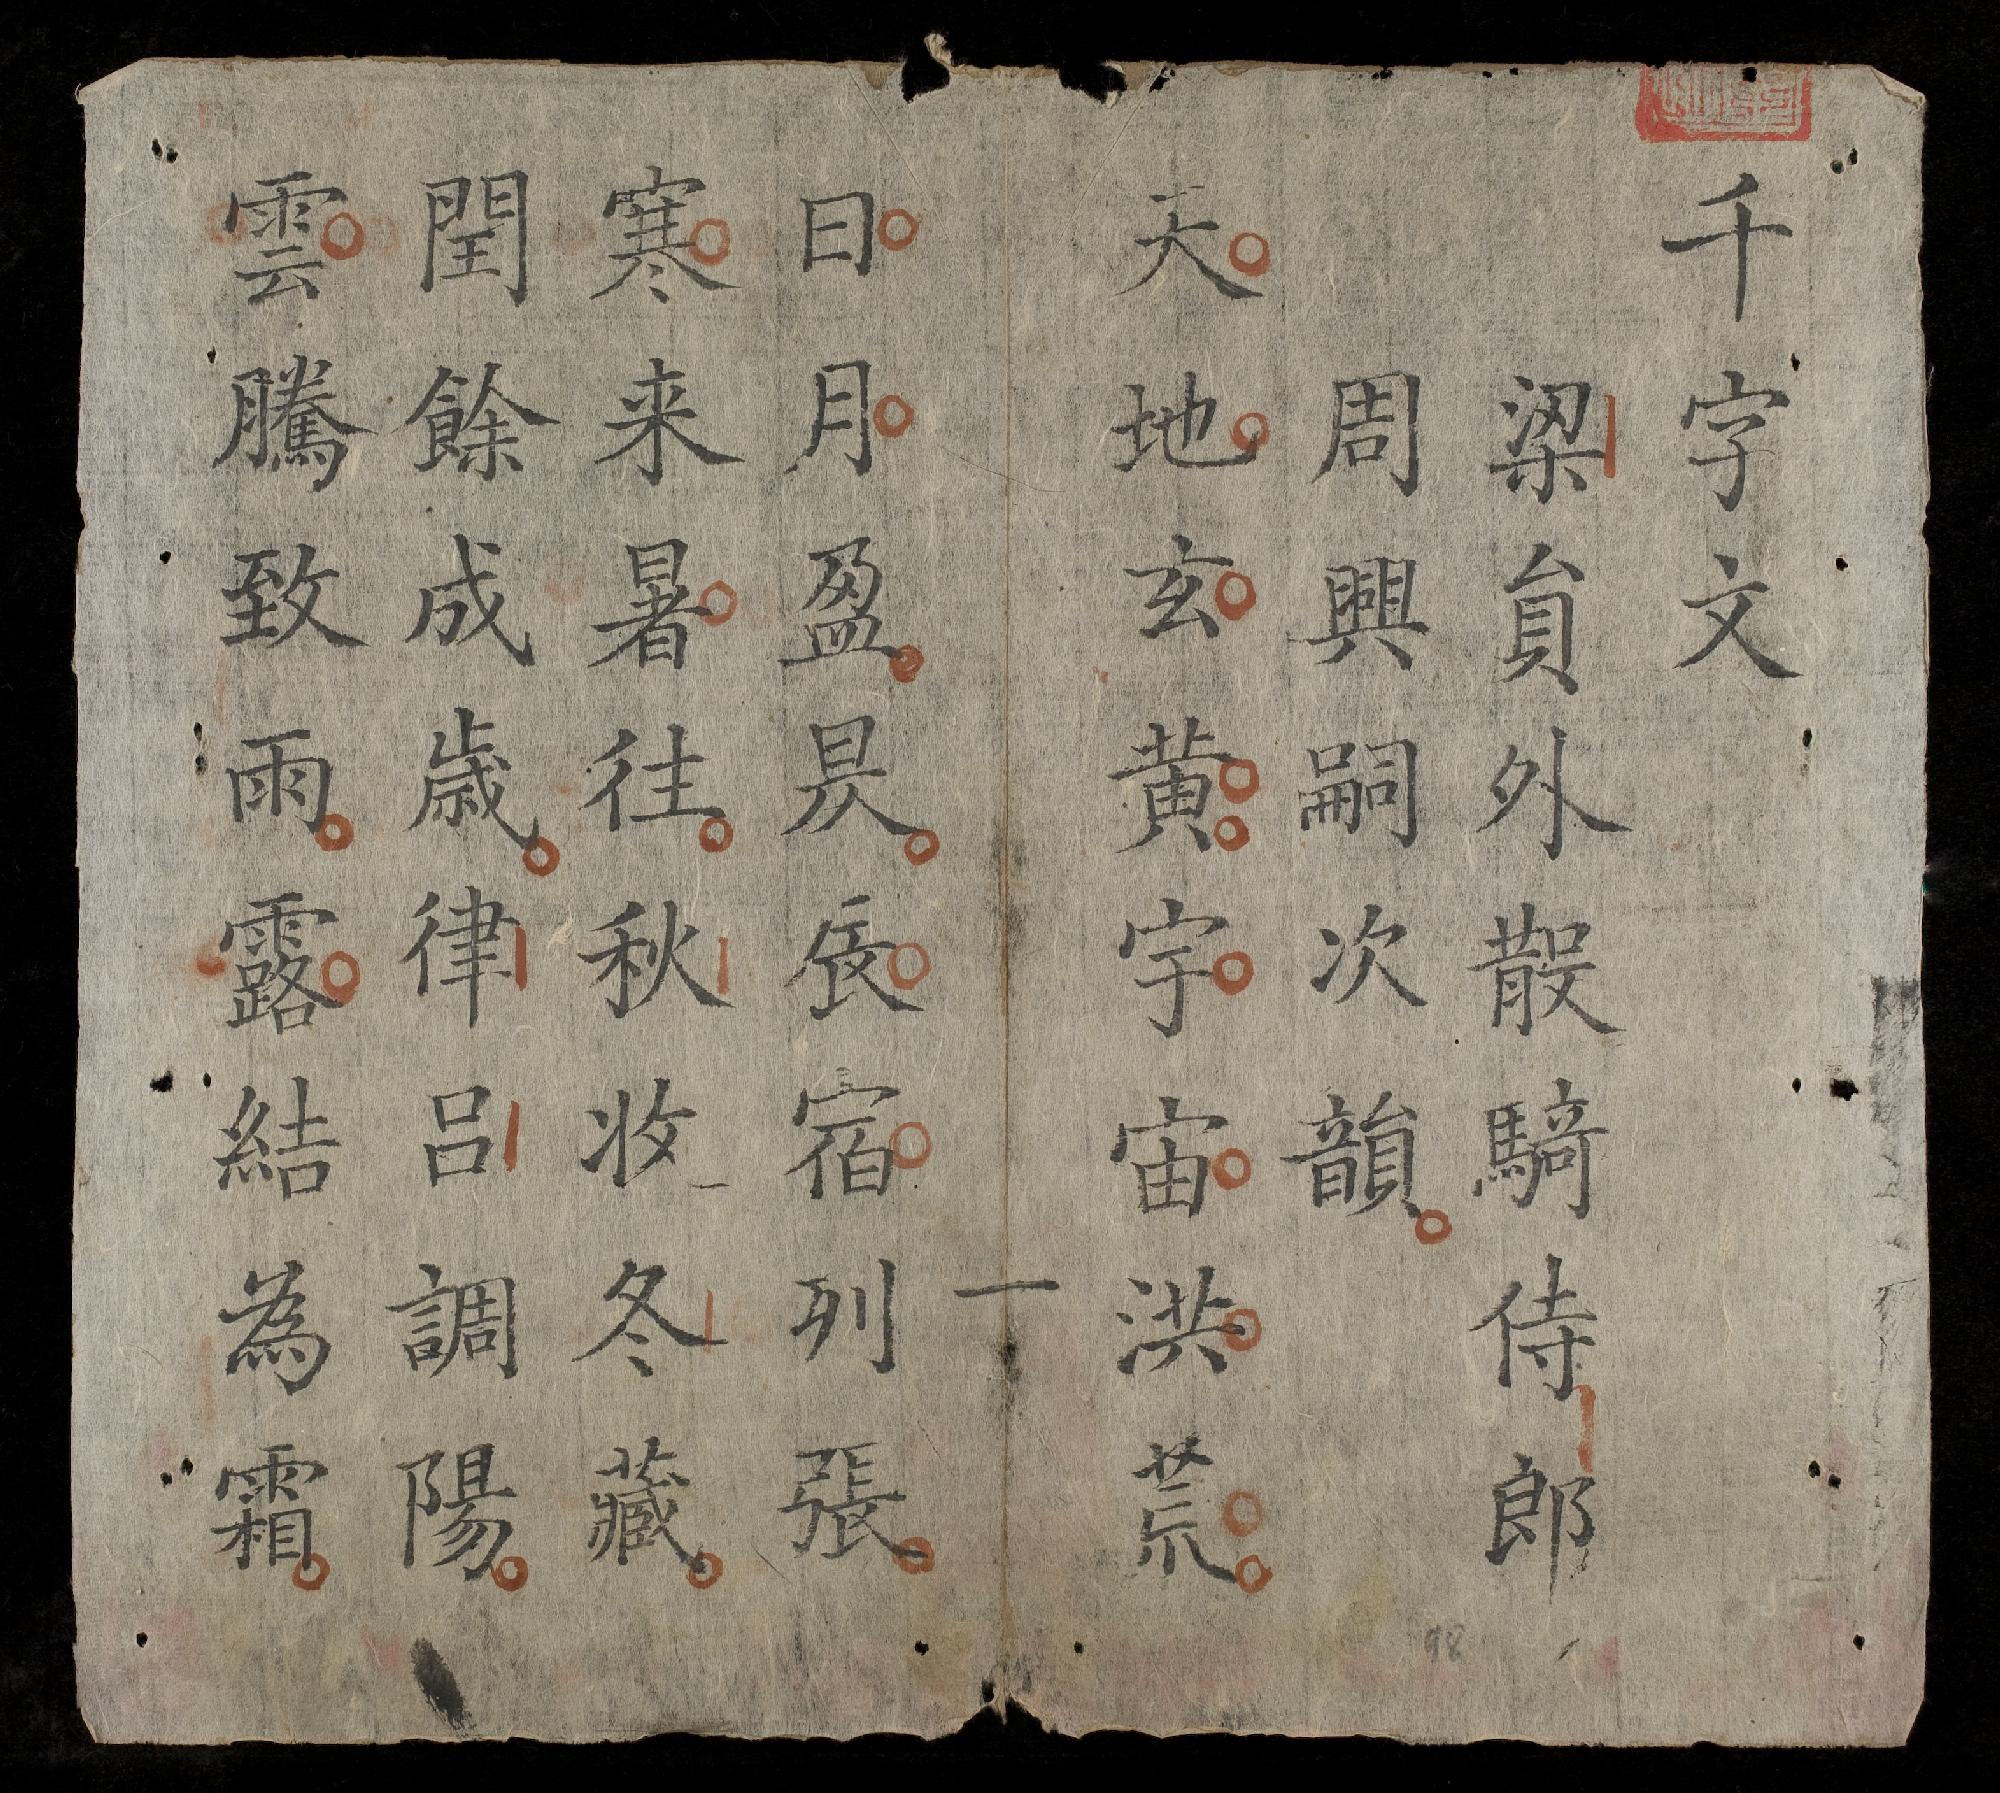 千字文
梁貟外散騎侍郎
周興嗣次韻
天地玄黄宇宙洪荒
一
日月盈昃辰宿列張
寒来暑往秋收冬藏
閏餘成歲律呂調陽
雲騰致雨露結為霜
98